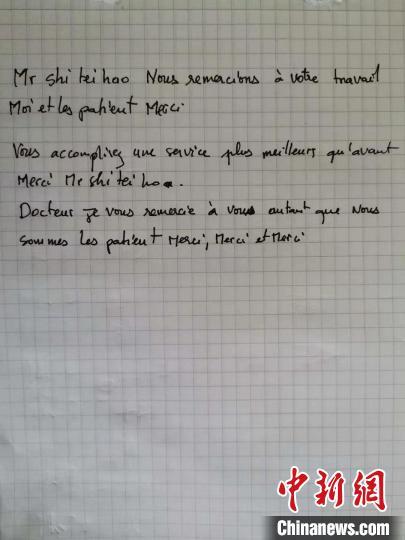 Mr shi tei hao Nous remercions à votre travail
Moi et les patient Merci
Vous accomplirez une service plus meilleurs qu'avant
Merci Mr shi tei hao.
Docteur je vous remercie à vous autant que nous
sommes les patient Merci, Merci et Merci
中新网
Chinanews.com